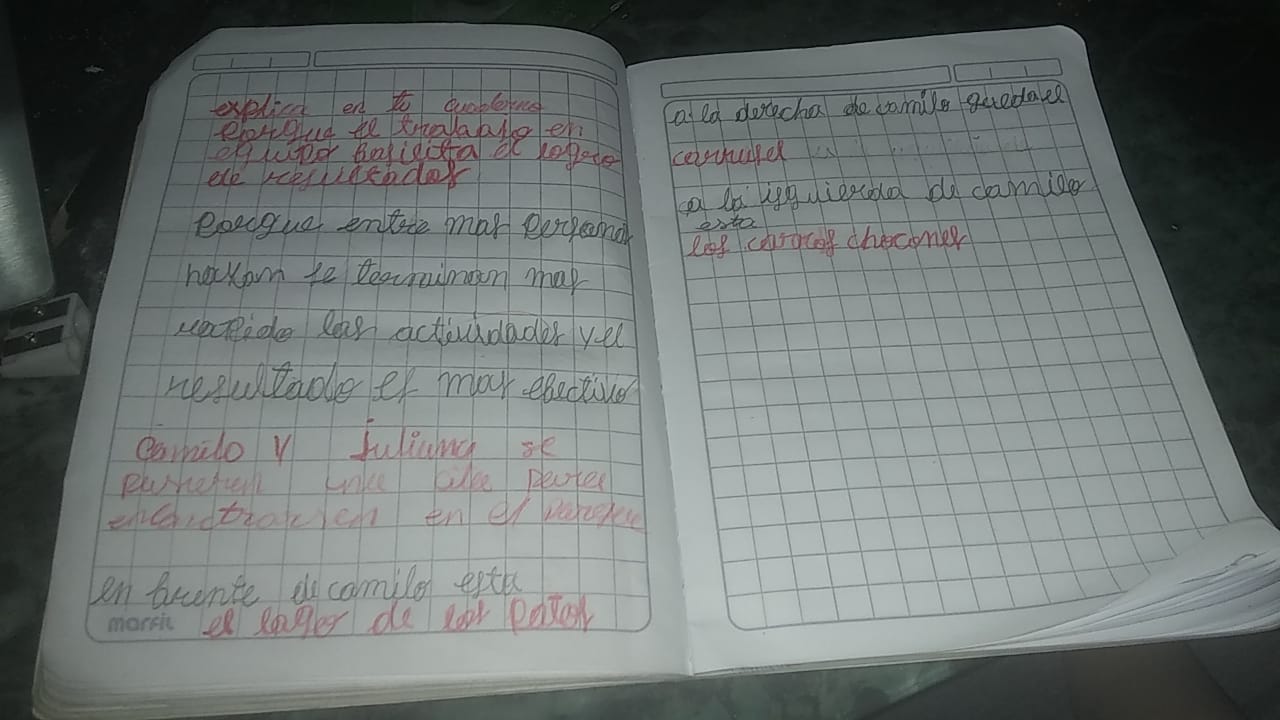 explica en tu cuaderno
porque el trabajo en
equipo facilita el logro
de resultados
porque entre mas personas
hallan se terminan mas
rapido las actividades y el
resultado es mas efectivo
Camilo y Juliana se
ponen cita para
encontrarsen en el parque
en frente de camilo esta
marfil
el lago de los patos
a la derecha de camilo queda el
carrusel
a la isquierda de camilo
esta
los carros chocones